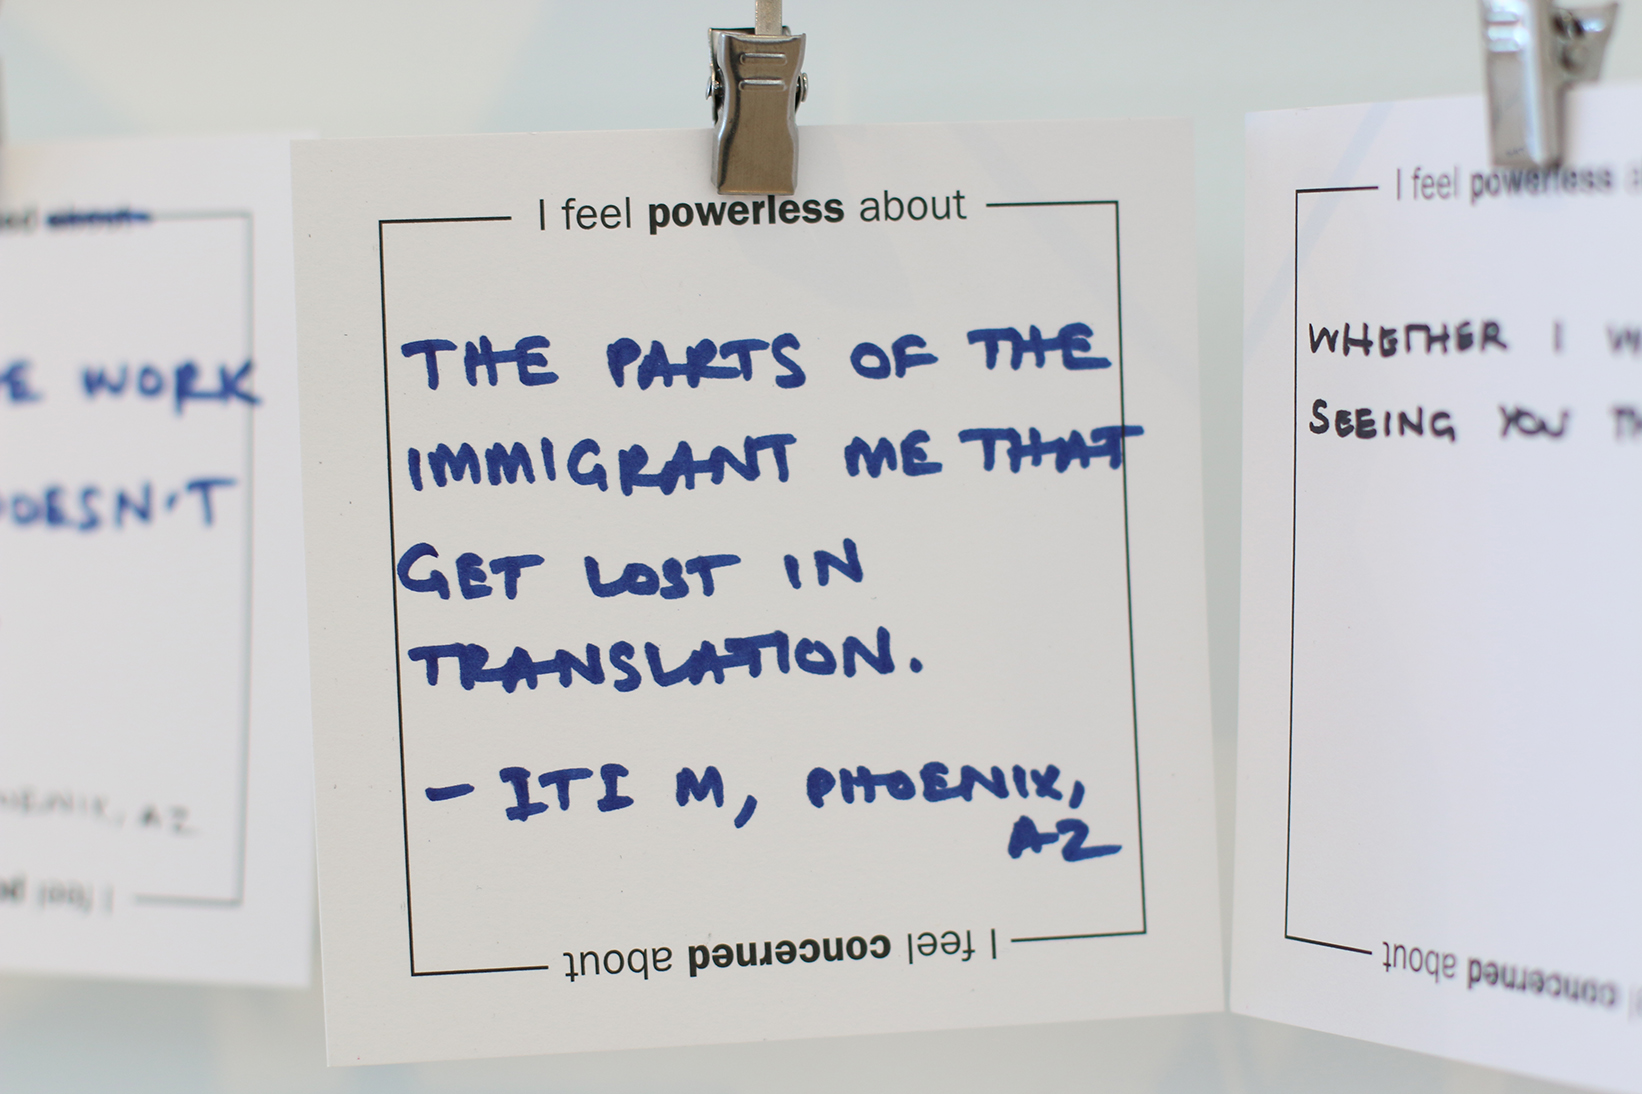 I feel powerless about
THE PARTS OF THE
IMMIGRANT ME THAT
GET LOST IN
TRANSLATION.
- ITI M, PHOENIX,
AZ
I feel concerned about
about
WORK
DOESN'T
AZ
I feel
I feel powerless
WHETHER I
SEEING YOU
concerned about